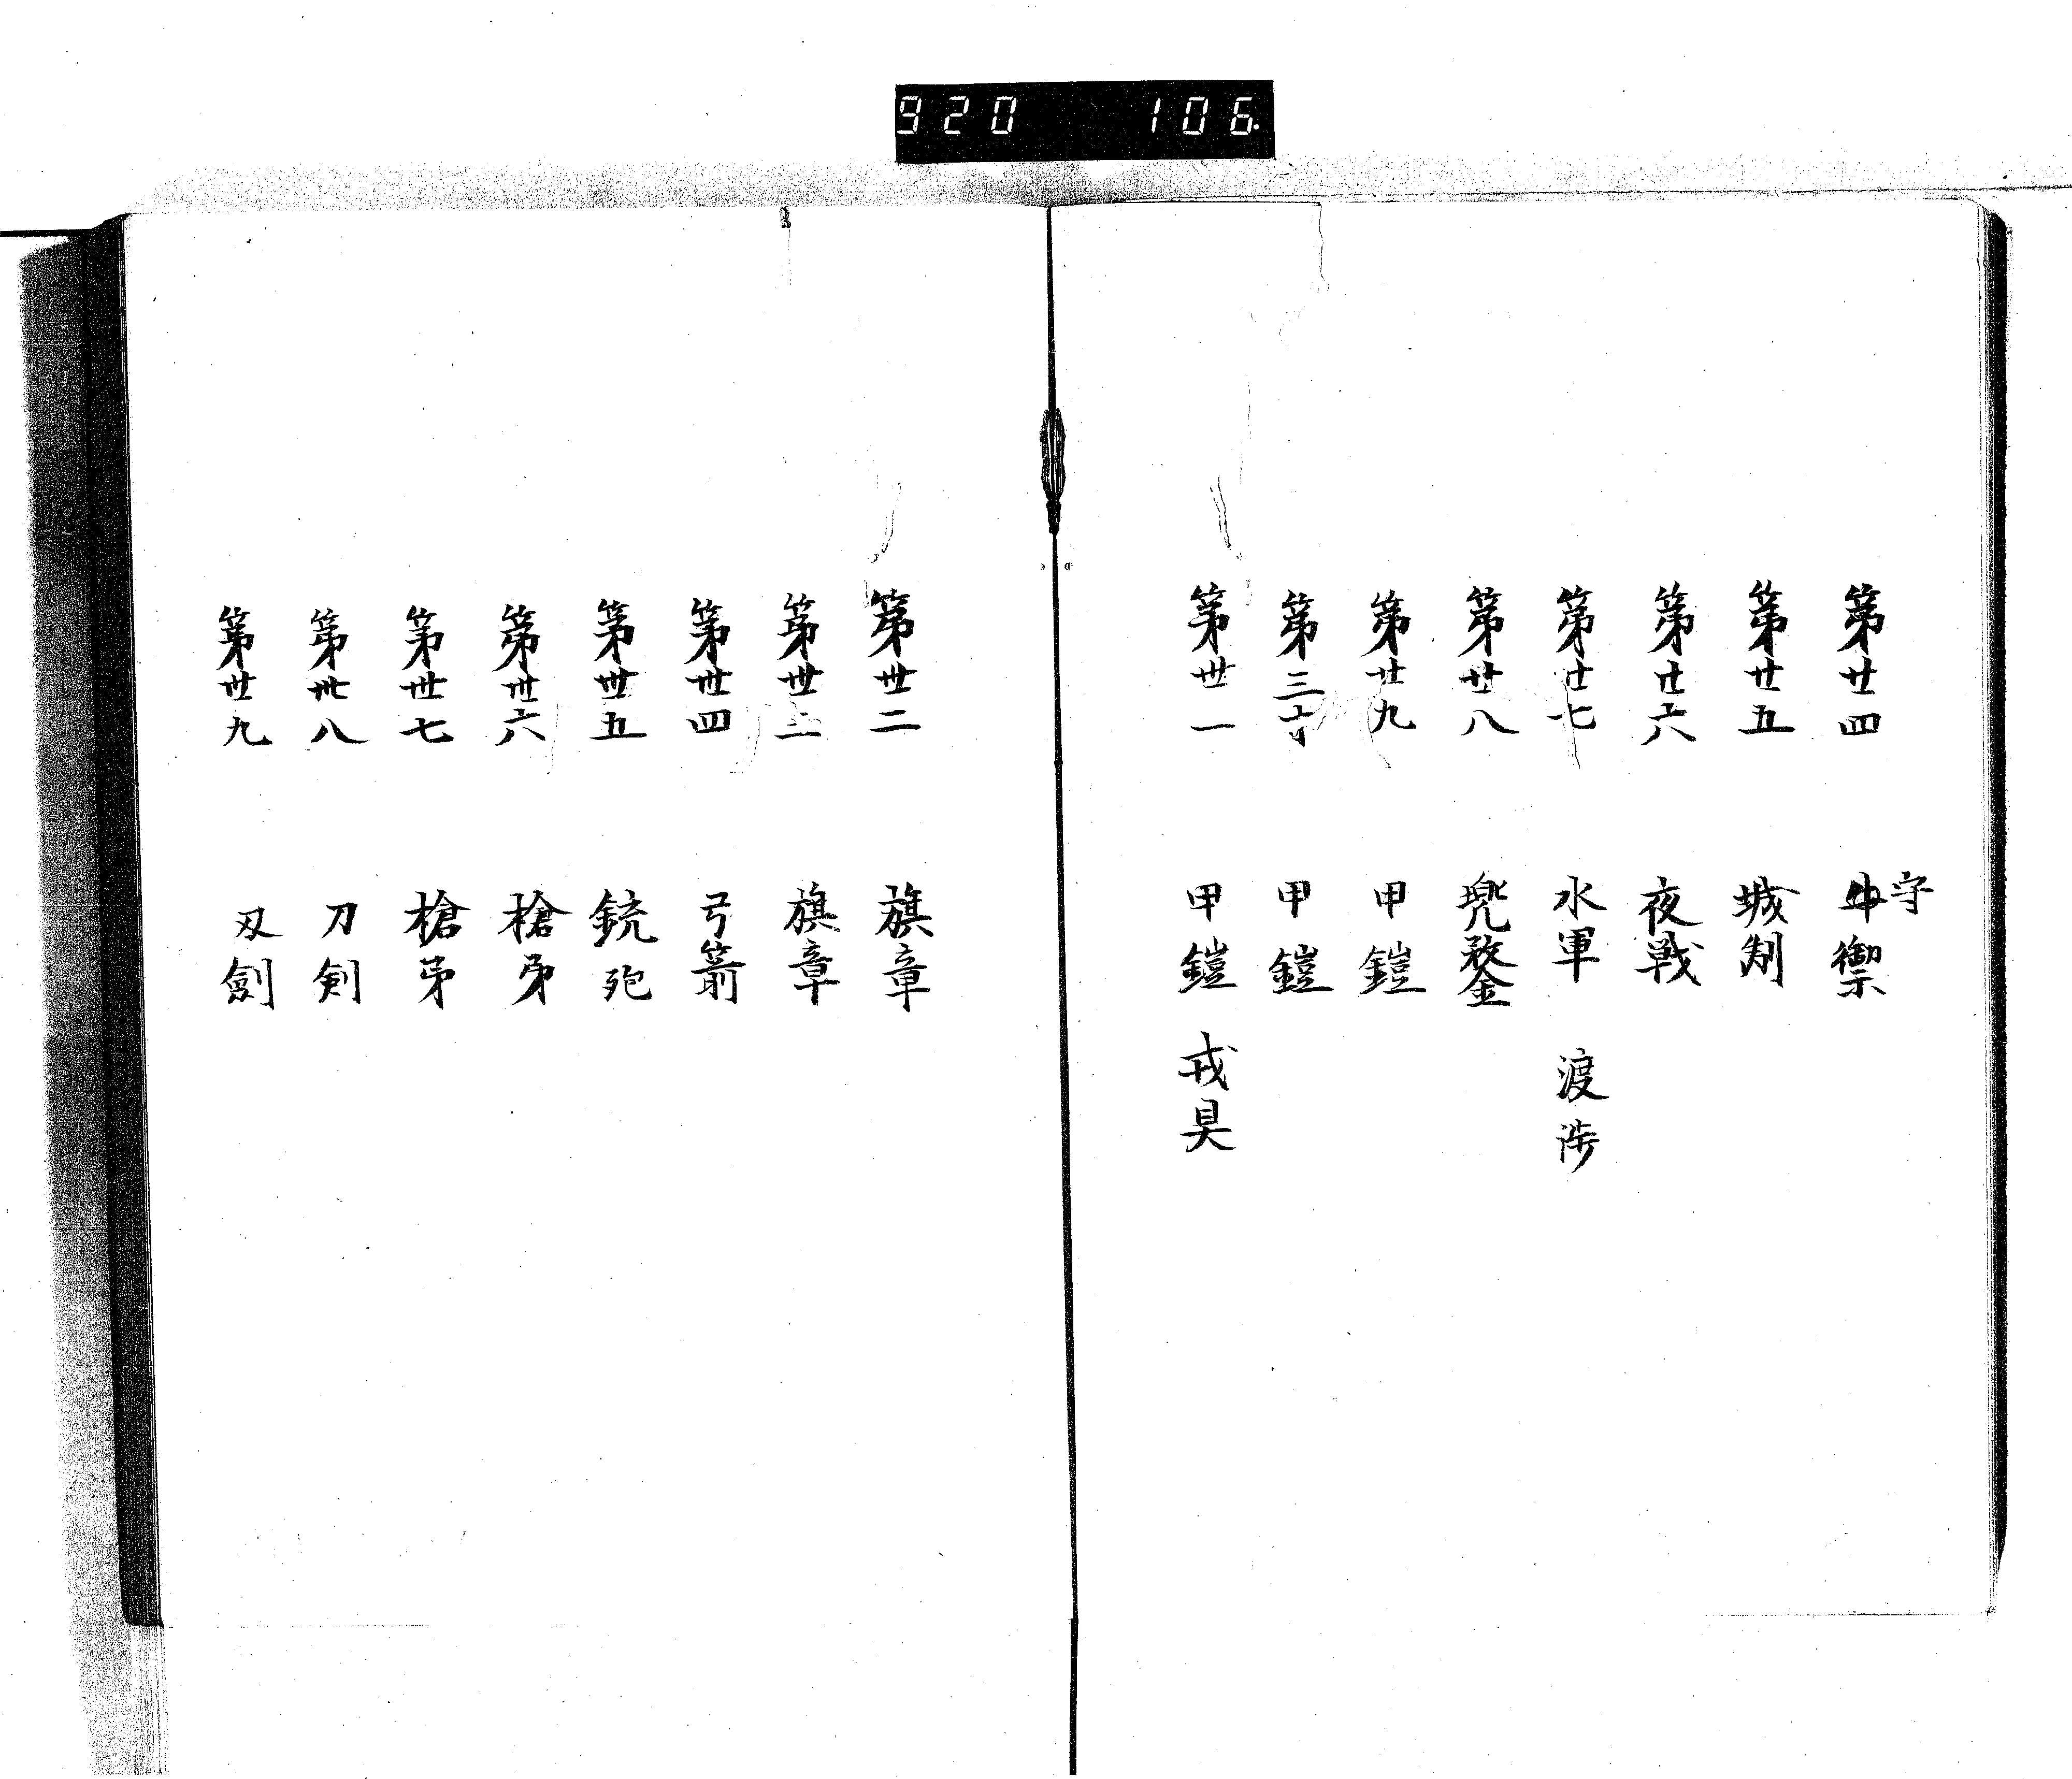 920 106
第廿四 守禦
第廿五 城制
第廿六 夜戦
第廿七 水軍 渡渉
第廿八 兜鍪
第廿九 甲鎧
第三十 甲鎧
第丗一 甲鎧 戎具
第丗二 旗章
第丗三 旗章
第丗四 弓箭
第丗五 銃砲
第丗六 槍矛
第丗七 槍矛
第丗八 刀剣
第丗九 刄劍